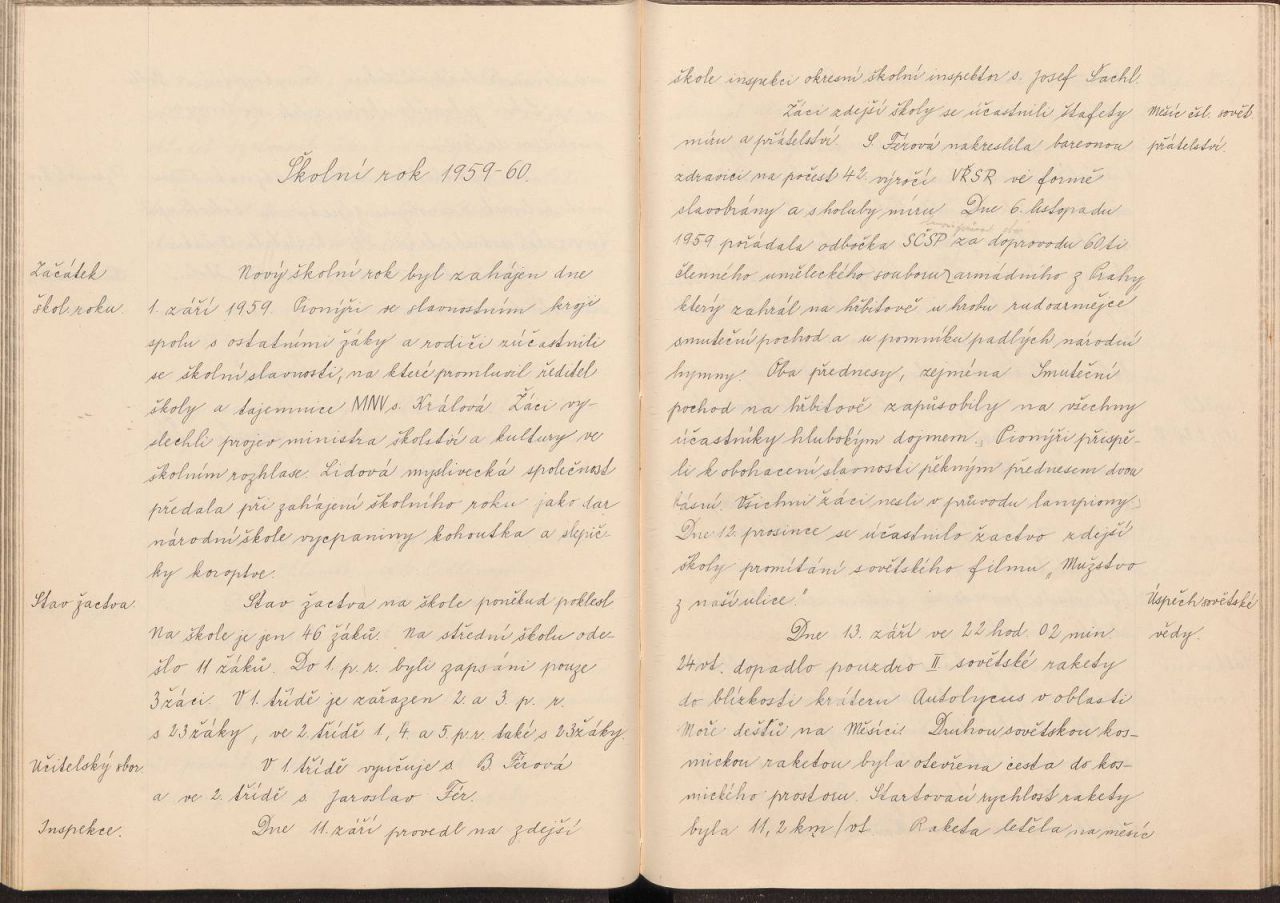 Školní rok 1959-60.
Začátek
škol. roku.
Nový školní rok byl zahájen dne
1. září 1959. Pionýři ve slavnostním kroji
spolu s ostatními žáky a rodiči zúčastnili
se školní slavnosti, na které promluvil ředitel
školy a tajemnice MNV s. Králová. Žáci vy-
slechli projev ministra školství a kultury ve
školním rozhlase. Lidová myslivecká společnost
předala při zahájení školního roku jako dar
národní škole vycpaniny kohoutka a slepič-
ky koroptve.
Stav žactva.
Stav žactva na škole poněkud poklesl.
Na škole je jen 46 žáků. Na střední školu ode-
šlo 11 žáků. Do 1. p. r. byli zapsáni pouze
3 žáci. V 1. třídě je zařazen 2. a 3. p. r.
s 23 žáky, ve 2. třídě 1, 4. a 5 p.r. také s 23 žáky.
Učitelský sbor.
V 1. třídě vyučuje s. B. Férová
a ve 2. třídě s. Jaroslav Fér.
Inspekce.
Dne 11. září provedl na zdejší
škole inspekci okresní školní inspektor s. Josef Šachl.
Měsíc čsl. sovět.
přátelství.
Žáci zdejší školy se účastnili štafety
míru a přátelství. S. Férová nakreslila barevnou
zdravici na počest 42. výročí VŘSR ve formě
slavobrány a s holuby míru. Dne 6. listopadu
1959 pořádala odbočka SČSP za doprovodu 60ti
členného uměleckého souboru armádního z Prahy
který zahrál na hřbitově u hrobu rudoarmějce
smuteční pochod a u pomníku padlých národní
hymny. Oba přednesy, zejména Smuteční
pochod na hřbitově zapůsobily na všechny
účastníky hlubokým dojmem. Pionýři přispě-
li k obohacení slavnosti pěkným přednesem dvou
básní. Všichni žáci nesli v průvodu lampiony.
Dne 12. prosince se účastnilo žactvo zdejší
školy promítání sovětského filmu „Mužstvo
z naší ulice."
Úspěch sovětské
vědy.
Dne 13. září ve 22 hod. 02 min.
24 vt. dopadlo pouzdro II sovětské rakety
do blízkosti kráteru Autolycus v oblasti
Moře dešťů na Měsíci. Druhou sovětskou kos-
mickou raketou byla otevřena cesta do kos-
mického prostoru. Startovací rychlost rakety
byla 11,2 km/vt. Raketa letěla na měsíc